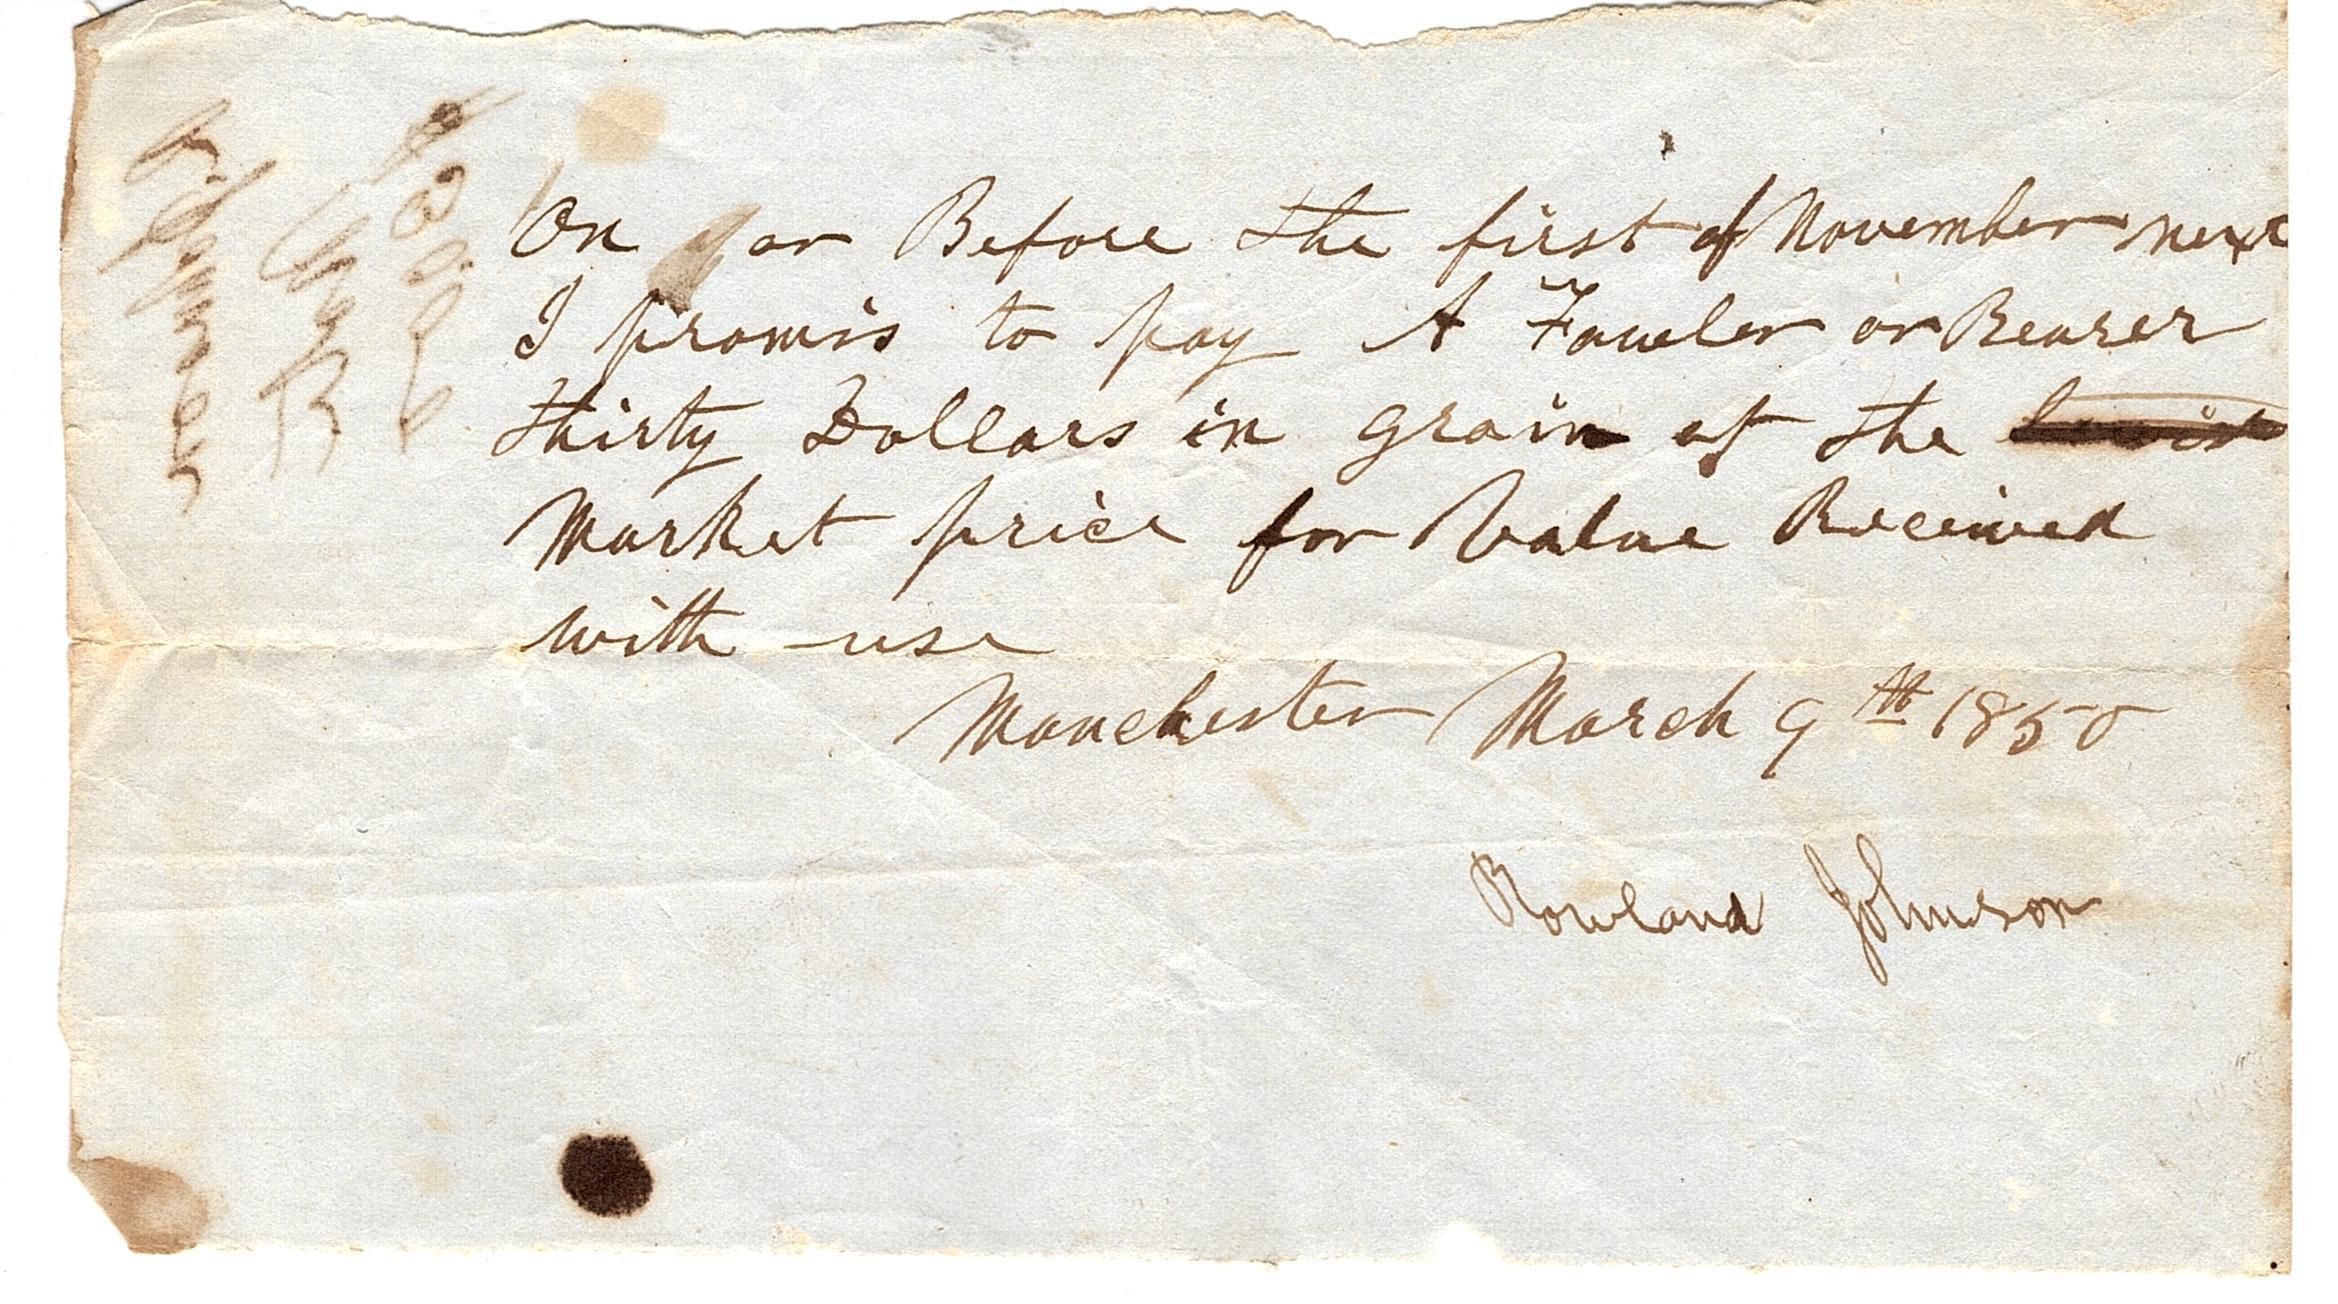 On or Before the first of November next
I promis to pay A Fowler or Bearer
thirty Dollars in grain at the
Market price for Value Received
with use
Manchester March 9th 1850
Rowland Johnson